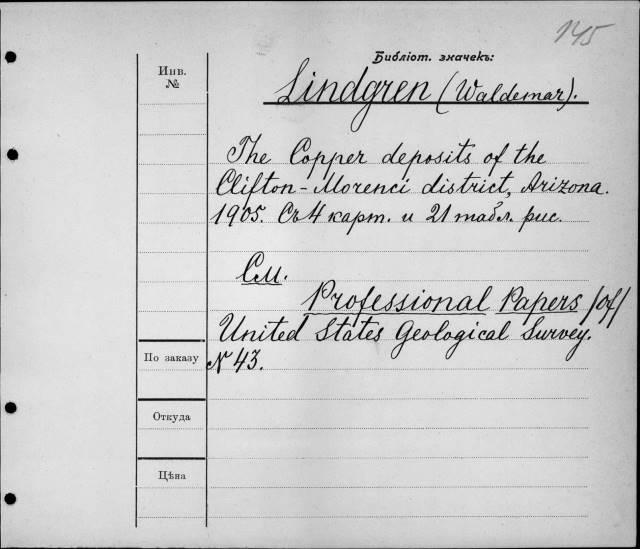 145
Библіот. значекъ:
Инв.
№
Lindgren (Waldemar).
The Copper deposits of the
Clifton-Morenci district, Arizona.
1905. Съ 4 карт. и 21 табл. рис.
См.
Professional Papers /of/
United States Geological Survey.
N 43.
По заказу
Откуда
Цѣна